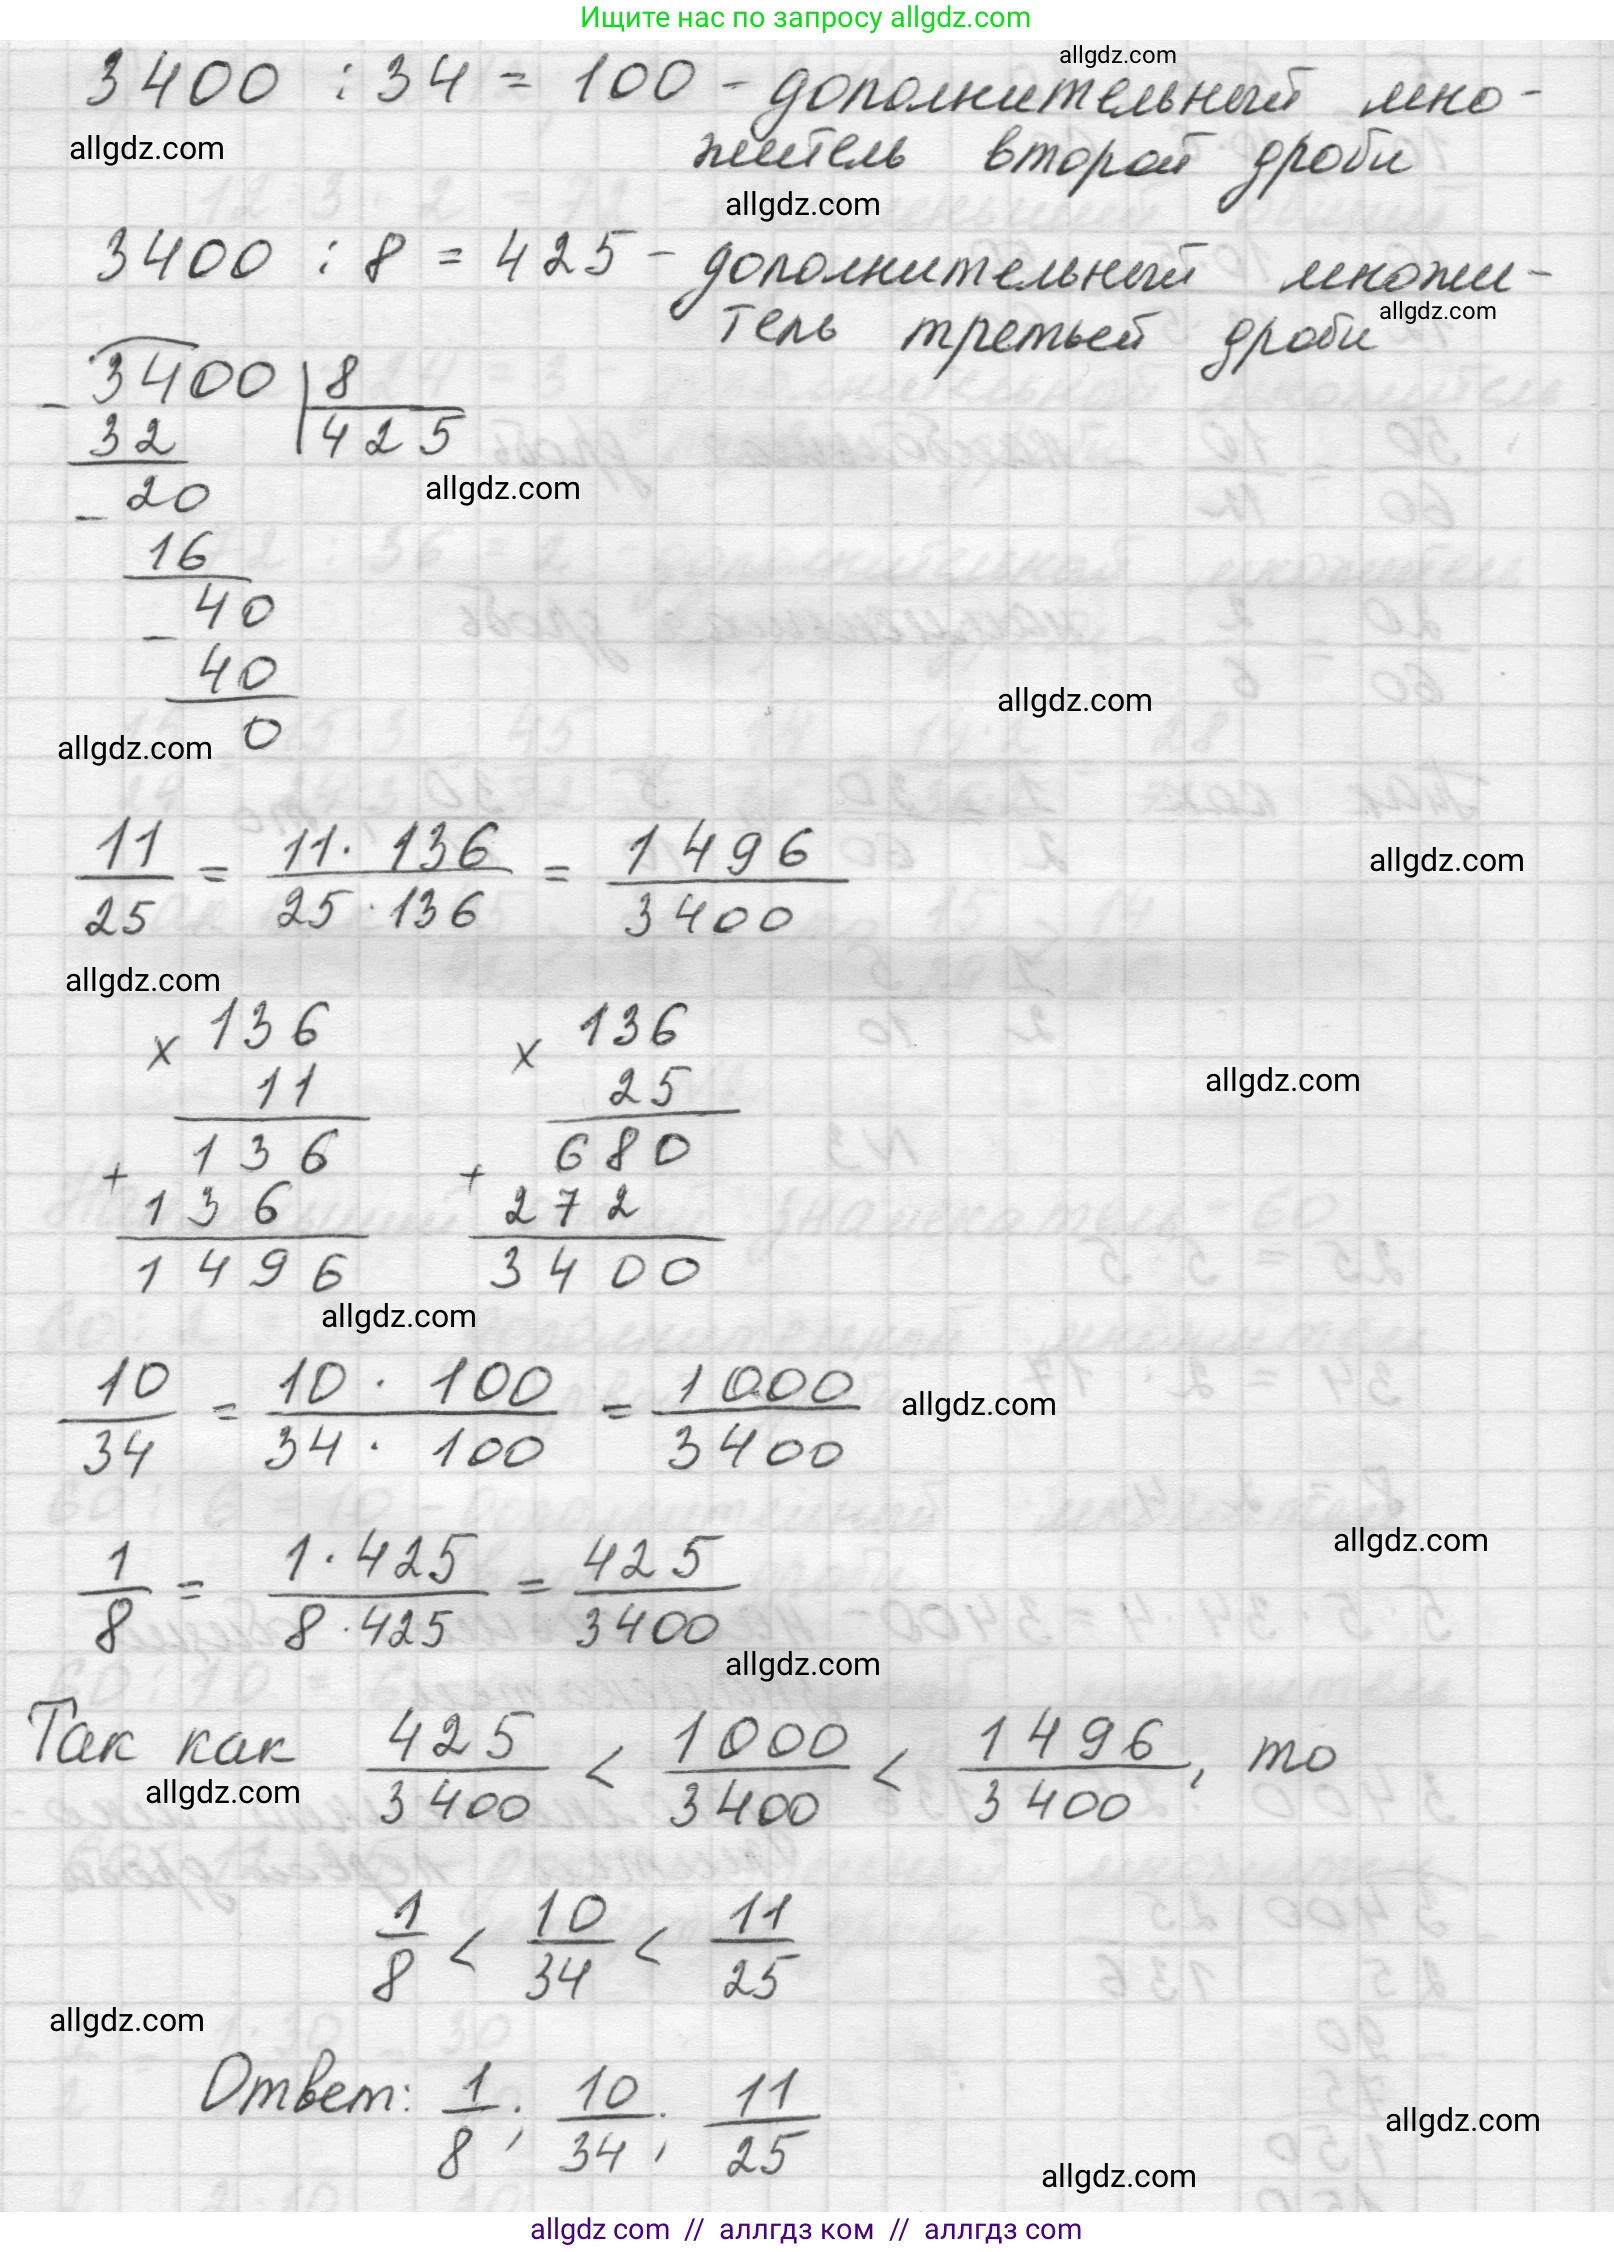 Ищите нас по запросу allgdz.com
3400 : 34 = 100 - дополнительный мно-
allgdz.com
allgdz.com
житель второй дроби
allgdz.com
3400 : 8 = 425 - дополнительный множи-
allgdz.com
тель третьей дроби
- 3400 | 8
32 | 425
allgdz.com
- 20
16
- 40
40
allgdz.com
0
allgdz.com
11/25 = 11 · 136/25 · 136 = 1496/3400
allgdz.com
allgdz.com
× 136 × 136
11 25
allgdz.com
+ 136 + 680
136 272
1496 3400
allgdz.com
10/34 = 10 · 100/34 · 100 = 1000/3400
allgdz.com
1/8 = 1 · 425/8 · 425 = 425/3400
allgdz.com
allgdz.com
Так как 425/3400 < 1000/3400 < 1496/3400, то
allgdz.com
1/8 < 10/34 < 11/25
allgdz.com
Ответ: 1/8; 10/34; 11/25
allgdz.com
allgdz.com
allgdz com // аллгдз ком // аллгдз com